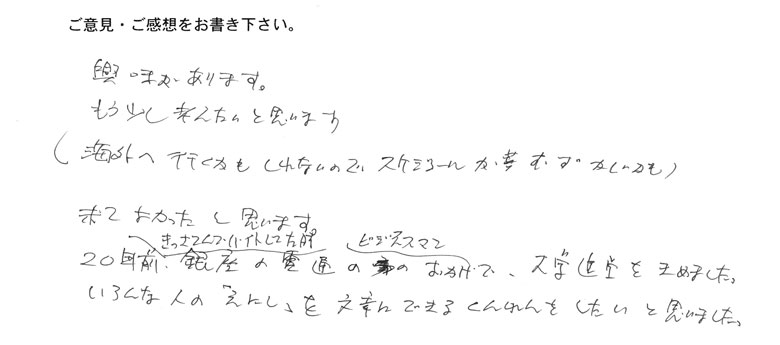 ご意見・ご感想をお書き下さい。
興味があります。
もう少し考えたいと思います
(海外へ行くかもしれないので、スケジュールが むずかしいかも)
来てよかったと思います。
きっさてんでバイトしてた時 ビジネスマン
20年前、銀座の電通の のおかげで、大学進学をきめました。
いろんな人の「えにし」を文章にできるくんれんをしたいと思いました。